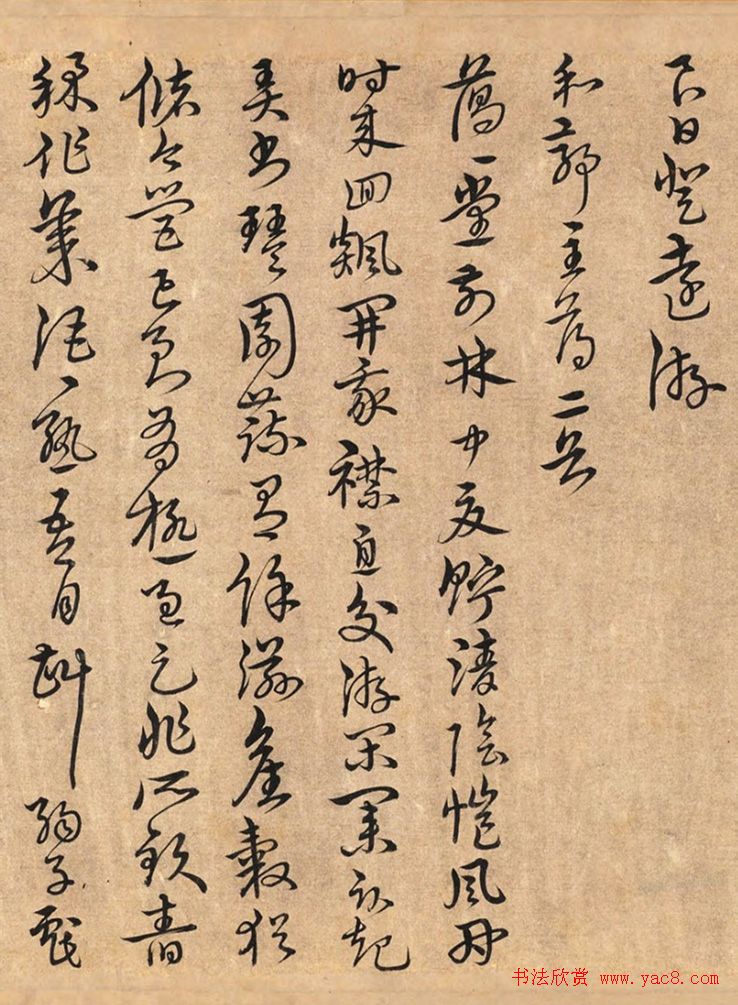 良日登遠游
和郭主簿二首
藹〻堂前林中夏貯清陰愷風因
時来回飆開我襟息交游閑業臥起
弄書琴園蔬有餘滋舊穀猶
儲今營己良有極過足非所欽舂
秫作美酒〻熟吾自斟弱子戲
书法欣赏 www.yac8.com